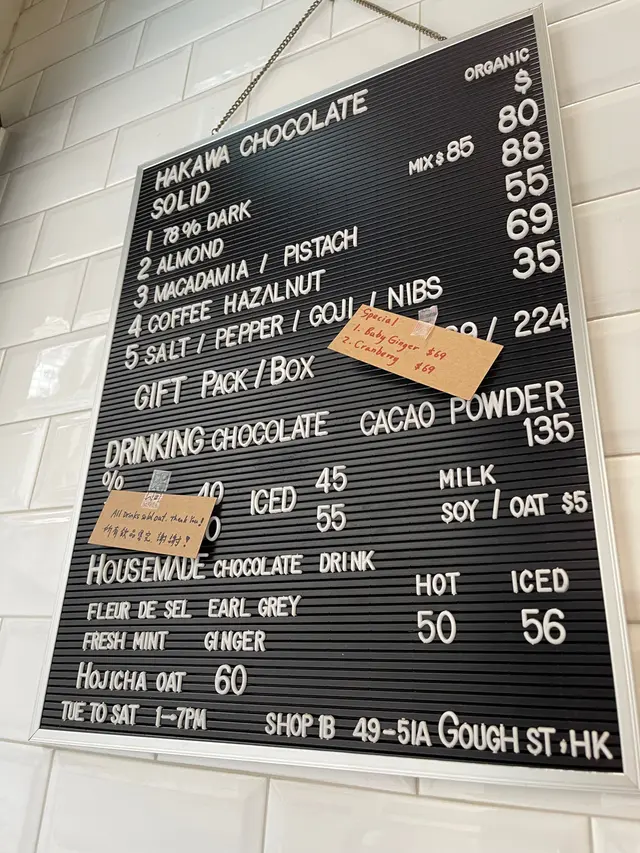 ORGANIC
$
HAKAWA CHOCOLATE
SOLID
1 78% DARK 80
2 ALMOND MIX $ 85 88
3 MACADAMIA / PISTACH 55
4 COFFEE HAZALNUT 69
5 SALT / PEPPER / GOJI / NIBS 35
GIFT PACK / BOX / 224
Special
1. Baby Ginger $69
2. Cranberry $69
DRINKING CHOCOLATE CACAO POWDER
135
% 40 ICED 45 MILK
55 SOY / OAT $5
All drinks sold out. Thank You!
所有飲品售完 謝謝!
HOUSEMADE CHOCOLATE DRINK
HOT ICED
FLEUR DE SEL EARL GREY 50 56
FRESH MINT GINGER
HOJICHA OAT 60
TUE TO SAT 1→7PM SHOP 1B 49-51A GOUGH ST, HK